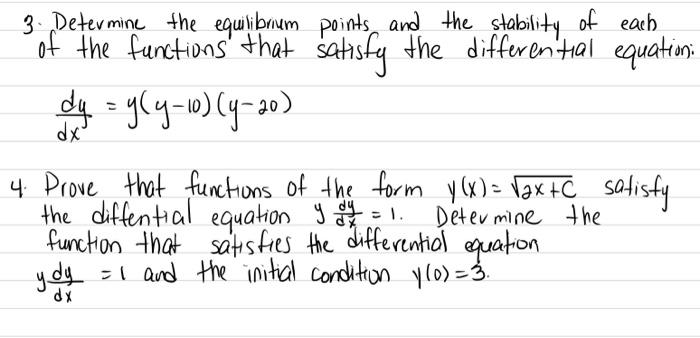 3. Determine the equilibrium points and the stability of each
of the functions that satisfy the differential equation:
dy/dx = y(y-10)(y-20)
4. Prove that functions of the form y(x) = √2x+C satisfy
the diffential equation y dy/dx = 1. Determine the
function that satisfies the differential equation
y dy/dx = 1 and the initial condition y(0) = 3.